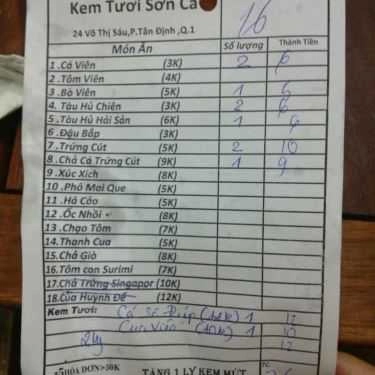 Kem Tươi Sơn Ca
24 Võ Thị Sáu,P.Tân Định,Q.1
16
Món Ăn Số lượng Thành Tiền
1 .Cá Viên (3K) 2 6
2 .Tôm Viên (4K)
3 .Bò Viên (5K) 1 5
4 .Tàu Hủ Chiên (3K) 2 6
5 .Tàu Hủ Hải Sản (6K) 1 6
6 .Đậu Bắp (3K)
7 .Trứng Cút (5K) 2 10
8 .Chả Cá Trứng Cút (9K) 1 9
9 .Xúc Xích (8K)
10 .Phô Mai Que (5K)
11 .Há Cảo (5K)
12 .Ốc Nhồi (8K)
13 .Chạo Tôm (7K)
14 .Thanh Cua (5K)
15 .Chả Giò (8K)
16 .Tôm con Surimi (7K)
17 .Chả Trứng Singapor (10K)
18 .Cua Huỳnh Đế (12K)
Kem Tươi: 1
1 10
12
HÓA ĐƠN>50K TẶNG 1 LY KEM MÚT